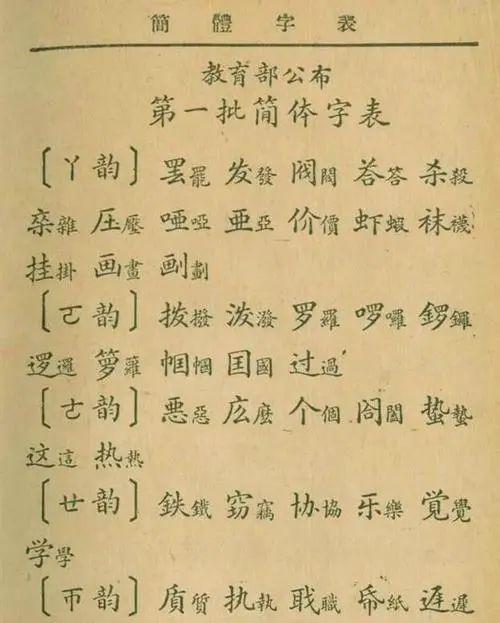 簡體字表
教育部公布
第一批简体字表
〔ㄚ韵〕 罢罷 发發 阀閥 荅答 杀殺
杂雜 圧壓 唖啞 亜亞 价價 虾蝦 袜襪
挂掛 画畫 㓰劃
〔ㄛ韵〕 拨撥 泼潑 罗羅 啰囉 锣鑼
逻邏 箩籮 帼幗 囯國 过過
〔ㄜ韵〕 悪惡 庅麼 个個 阁闔 蛰蟄
这這 热熱
〔ㄝ韵〕 鉄鐵 窃竊 协協 乐樂 覚覺
学學
〔ㄭ韵〕 质質 执執 职職 帋紙 迟遲